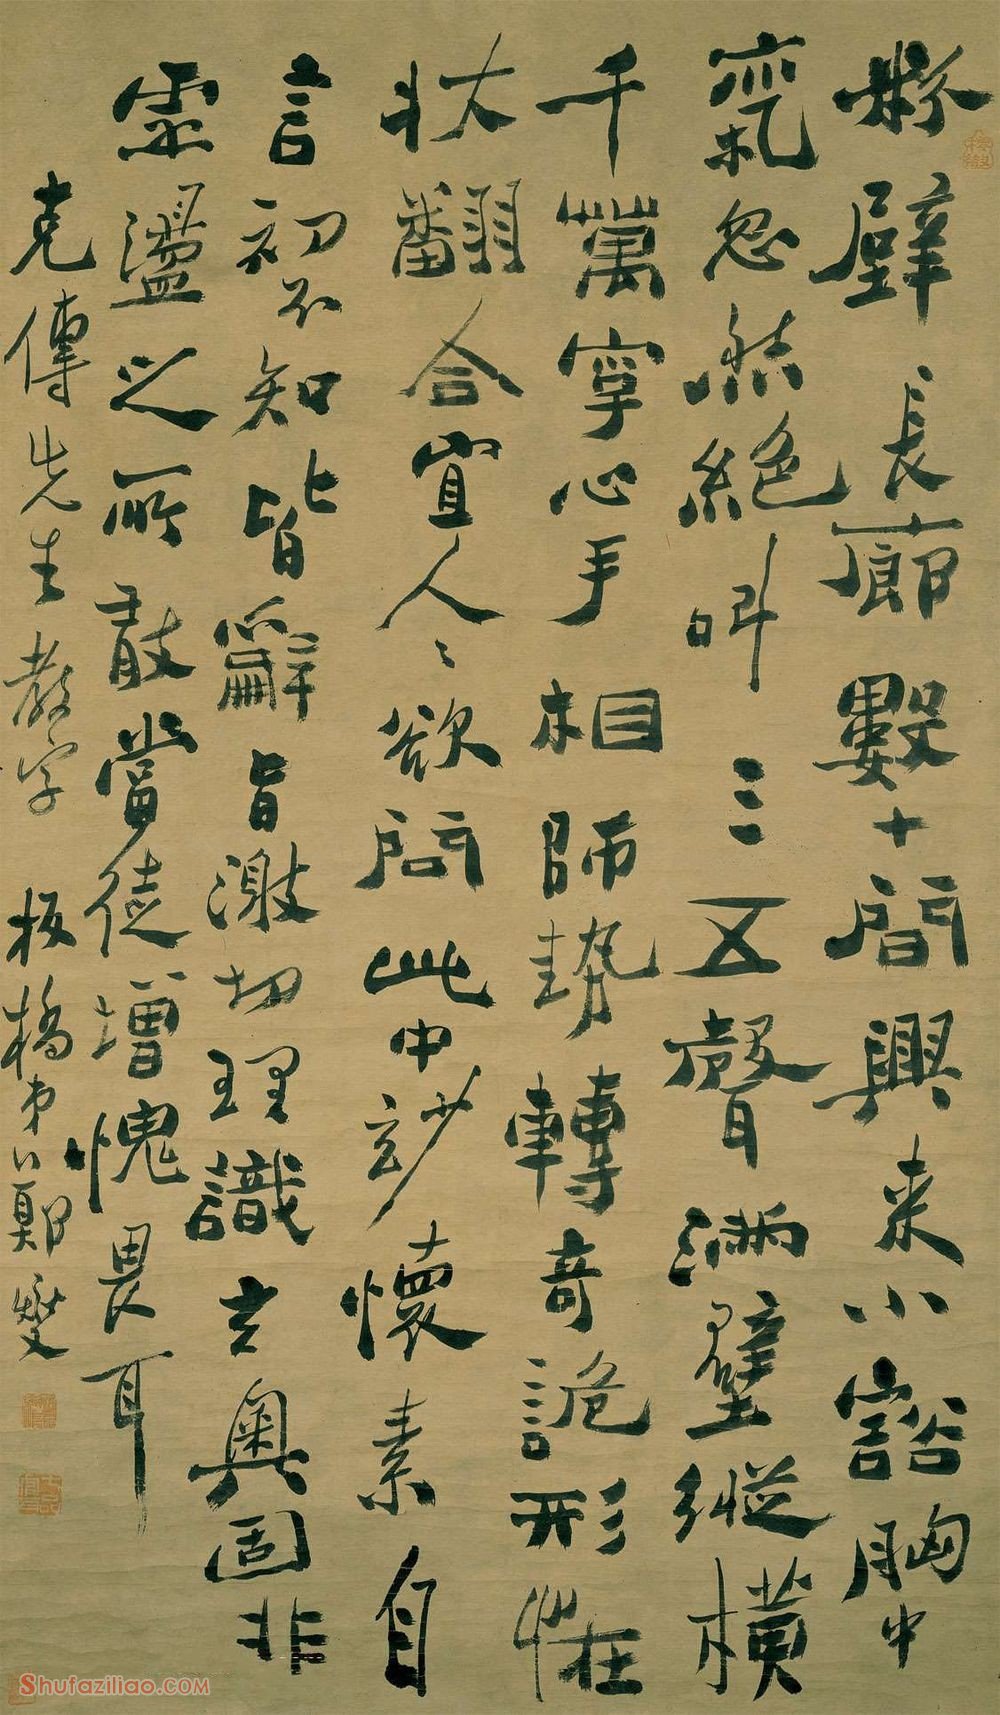 粉壁長廊數十間興来小豁胸中
氣忽然絕叫三五聲滿壁縱横
千萬字心手相師勢轉奇詭形怪
狀翻合宜人〻欲問此中玅懷素自
言初不知皆辭旨激切理識玄奥固非
虛盪之所敢當徒增愧畏耳
克傳先生教字 板橋弟鄭燮
Shufaziliao.COM